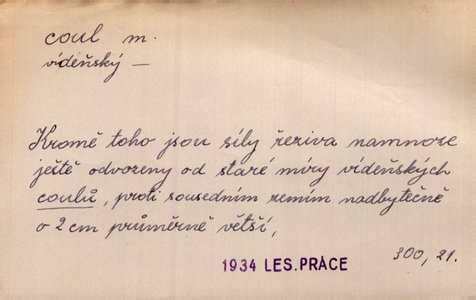 coul m.
vídeňský —
Kromě toho jsou síly řeziva namnoze
ještě odvozeny od staré míry vídeňských
coulů, proti sousedním zemím nadbytečně
o 2 cm průměrně větší,
300, 21.
1934 LES. PRÁCE